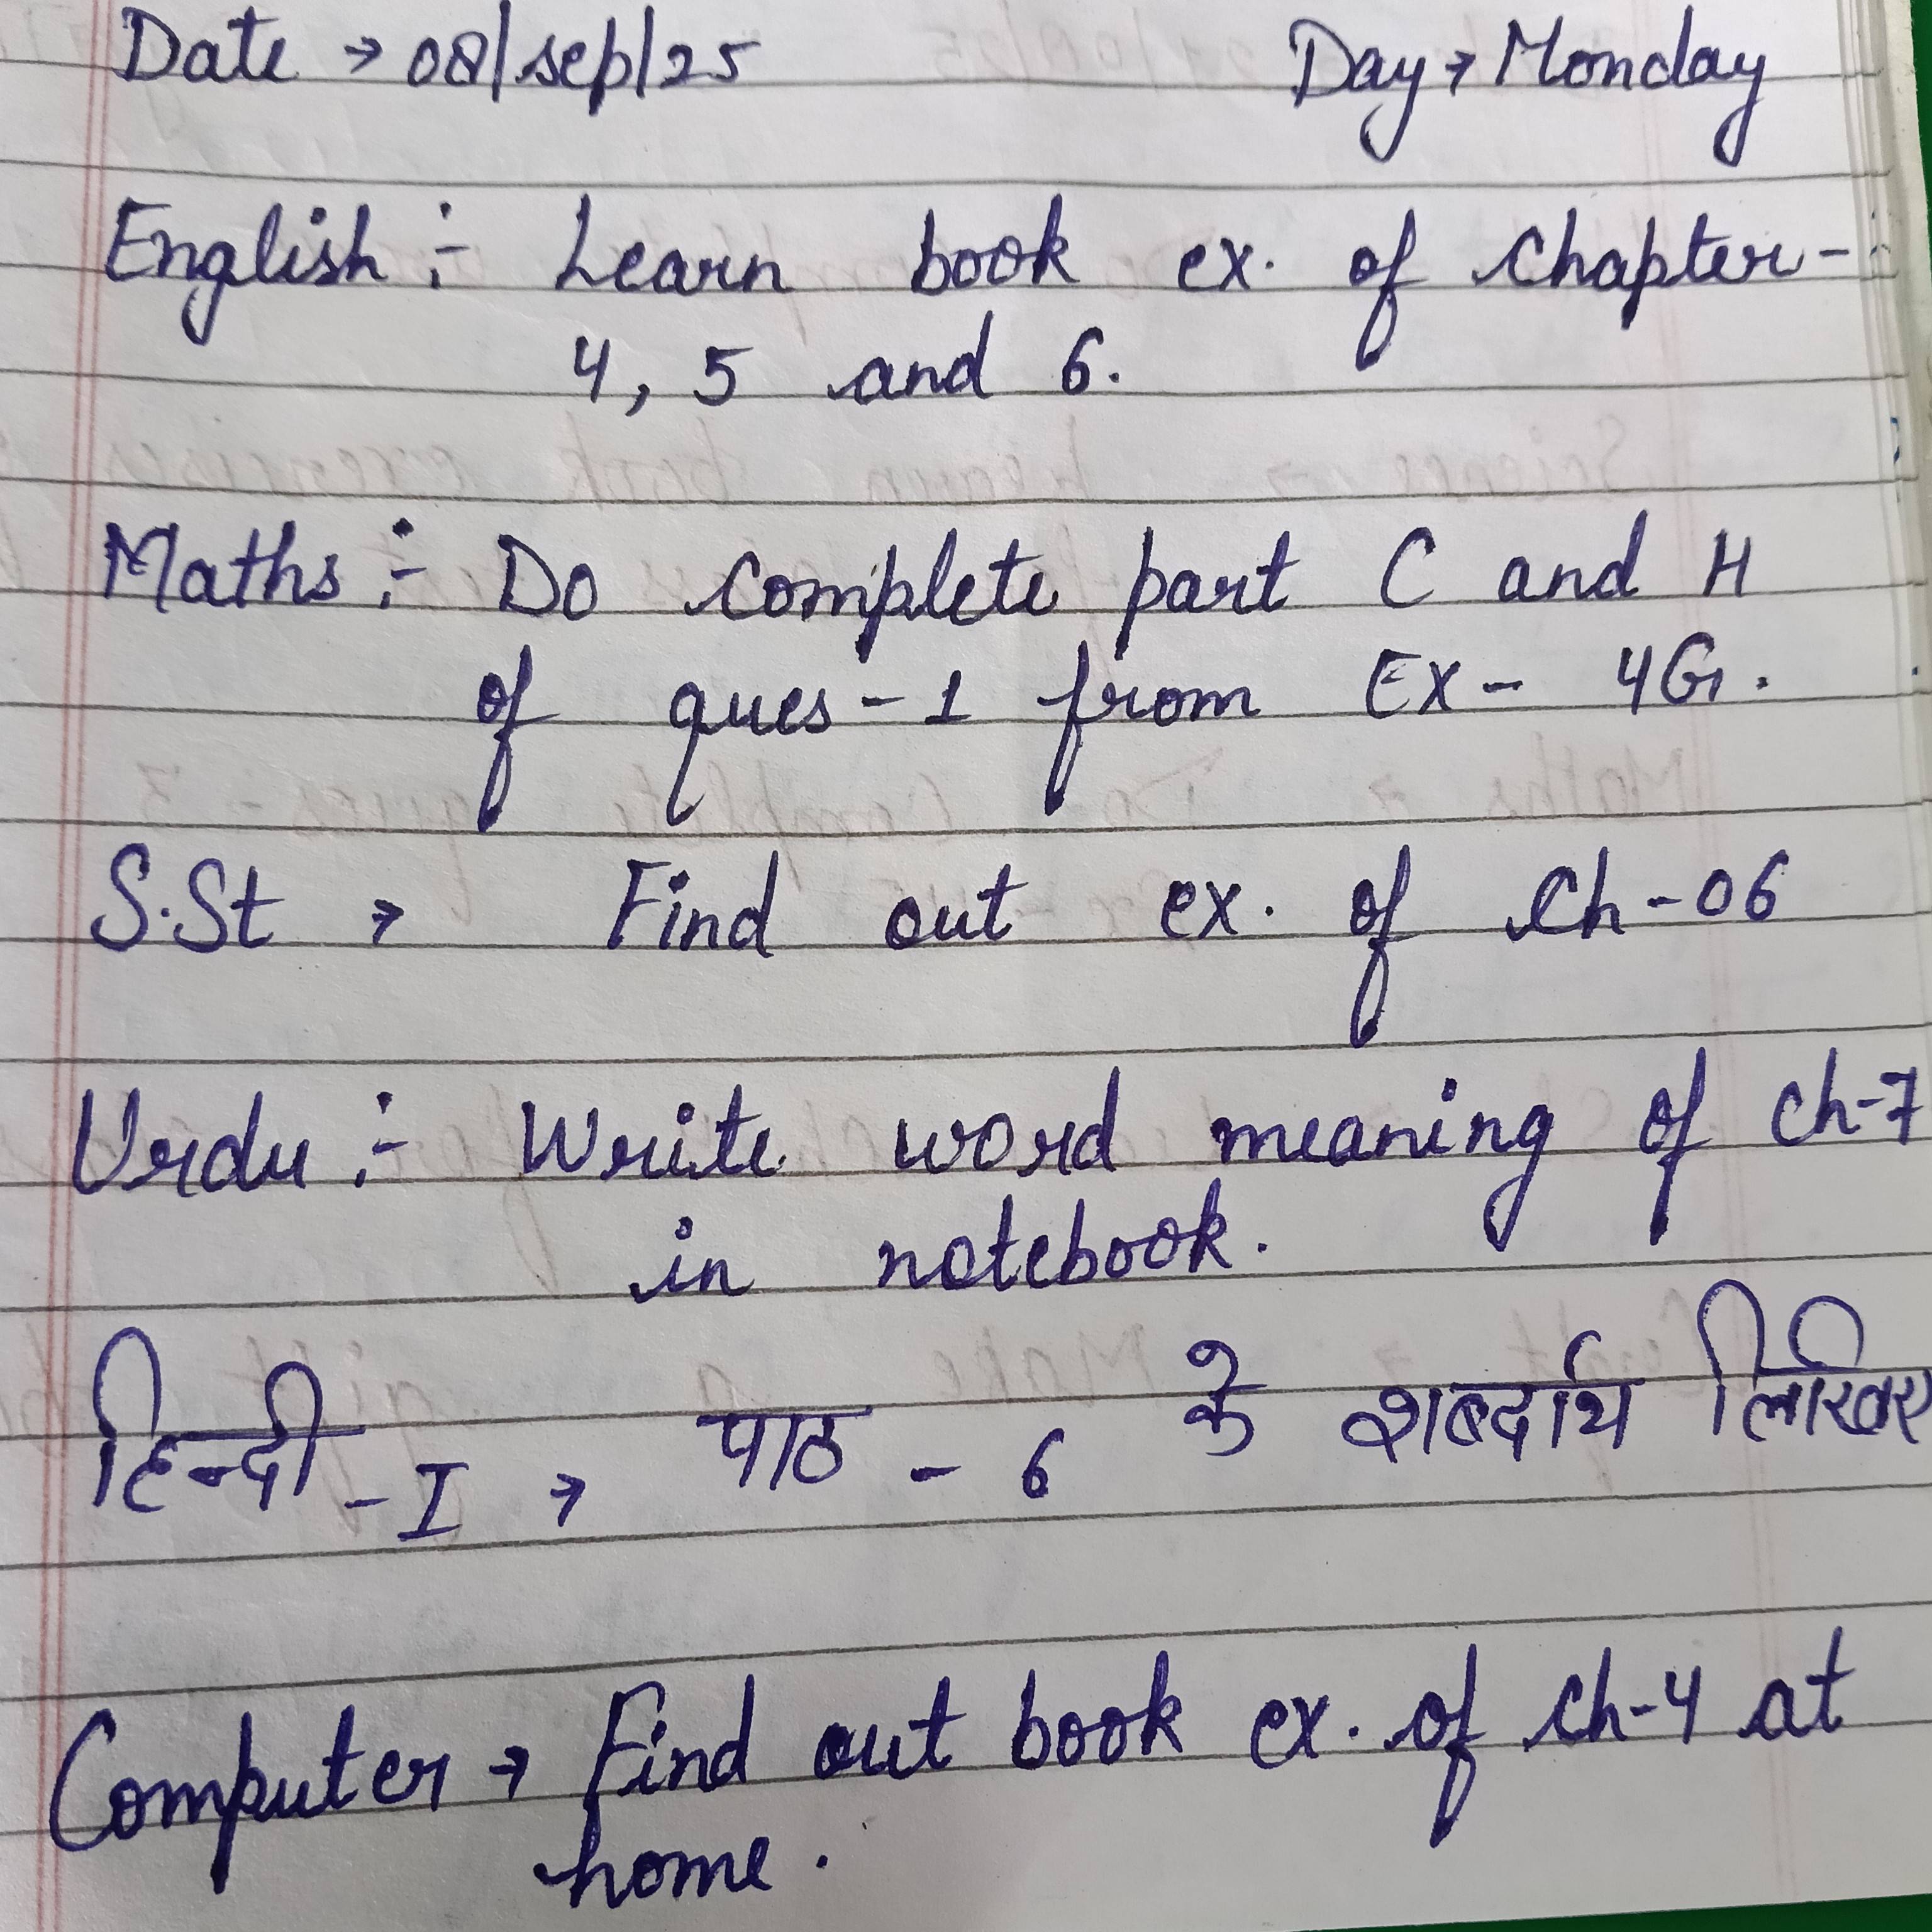 Date → 08/sep/25 Day → Monday
English :- Learn book ex. of chapter-
4, 5 and 6.
Maths :- Do complete part C and H
of ques-1 from Ex- 4G.
S.St → Find out ex. of Ch-06
Urdu :- Write word meaning of ch-7
in notebook.
हिन्दी - I → पाठ - 6 के शब्दार्थ लिखिए
Computer → Find out book ex. of ch-4 at
home.